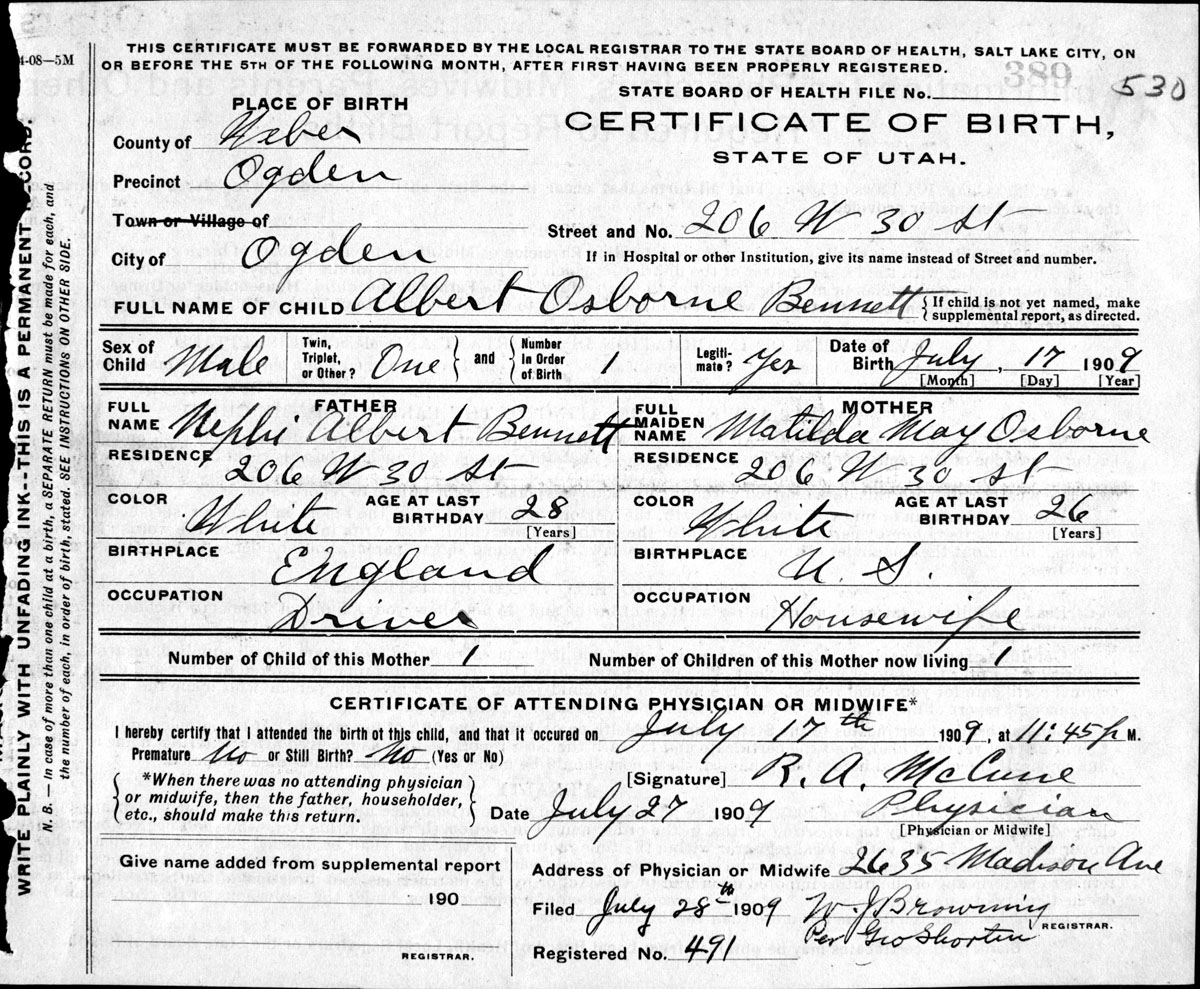 4-08—5M
THIS CERTIFICATE MUST BE FORWARDED BY THE LOCAL REGISTRAR TO THE STATE BOARD OF HEALTH, SALT LAKE CITY, ON
OR BEFORE THE 5TH OF THE FOLLOWING MONTH, AFTER FIRST HAVING BEEN PROPERLY REGISTERED.
389
530
STATE BOARD OF HEALTH FILE No.
PLACE OF BIRTH
CERTIFICATE OF BIRTH,
STATE OF UTAH.
County of Weber
Precinct Ogden
Town or Village of
Street and No. 206 W 30 St
City of Ogden
If in Hospital or other Institution, give its name instead of Street and number.
FULL NAME OF CHILD Albert Osborne Bennett {If child is not yet named, make
supplemental report, as directed.
Sex of Child Male
Twin, Triplet, or Other? One } and { Number in Order of Birth 1
Legiti-mate? Yes
Date of Birth July, 17 1909
[Month] [Day] [Year]
FATHER
FULL NAME Nephi Albert Bennett
RESIDENCE 206 W 30 St
COLOR White AGE AT LAST BIRTHDAY 28 [Years]
BIRTHPLACE England
OCCUPATION Driver
MOTHER
FULL MAIDEN NAME Matilda May Osborne
RESIDENCE 206 W 30 St
COLOR White AGE AT LAST BIRTHDAY 26 [Years]
BIRTHPLACE U. S.
OCCUPATION Housewife
Number of Child of this Mother 1 Number of Children of this Mother now living 1
CERTIFICATE OF ATTENDING PHYSICIAN OR MIDWIFE*
I hereby certify that I attended the birth of this child, and that it occured on July 17th 1909, at 11:45p M.
Premature No or Still Birth? No (Yes or No)
*When there was no attending physician
or midwife, then the father, householder,
etc., should make this return.
[Signature] R. A. McCune
Date July 27 1909 Physician
[Physician or Midwife]
Give name added from supplemental report
190
REGISTRAR.
Address of Physician or Midwife 2635 Madison Ave
Filed July 28th 1909 W J Browning
REGISTRAR.
Per Geo Shorten
Registered No. 491
WRITE PLAINLY WITH UNFADING INK---THIS IS A PERMANENT RECORD
N. B. — In case of more than one child at a birth, a SEPARATE RETURN must be made for each, and
the number of each, in order of birth, stated. SEE INSTRUCTIONS ON OTHER SIDE.